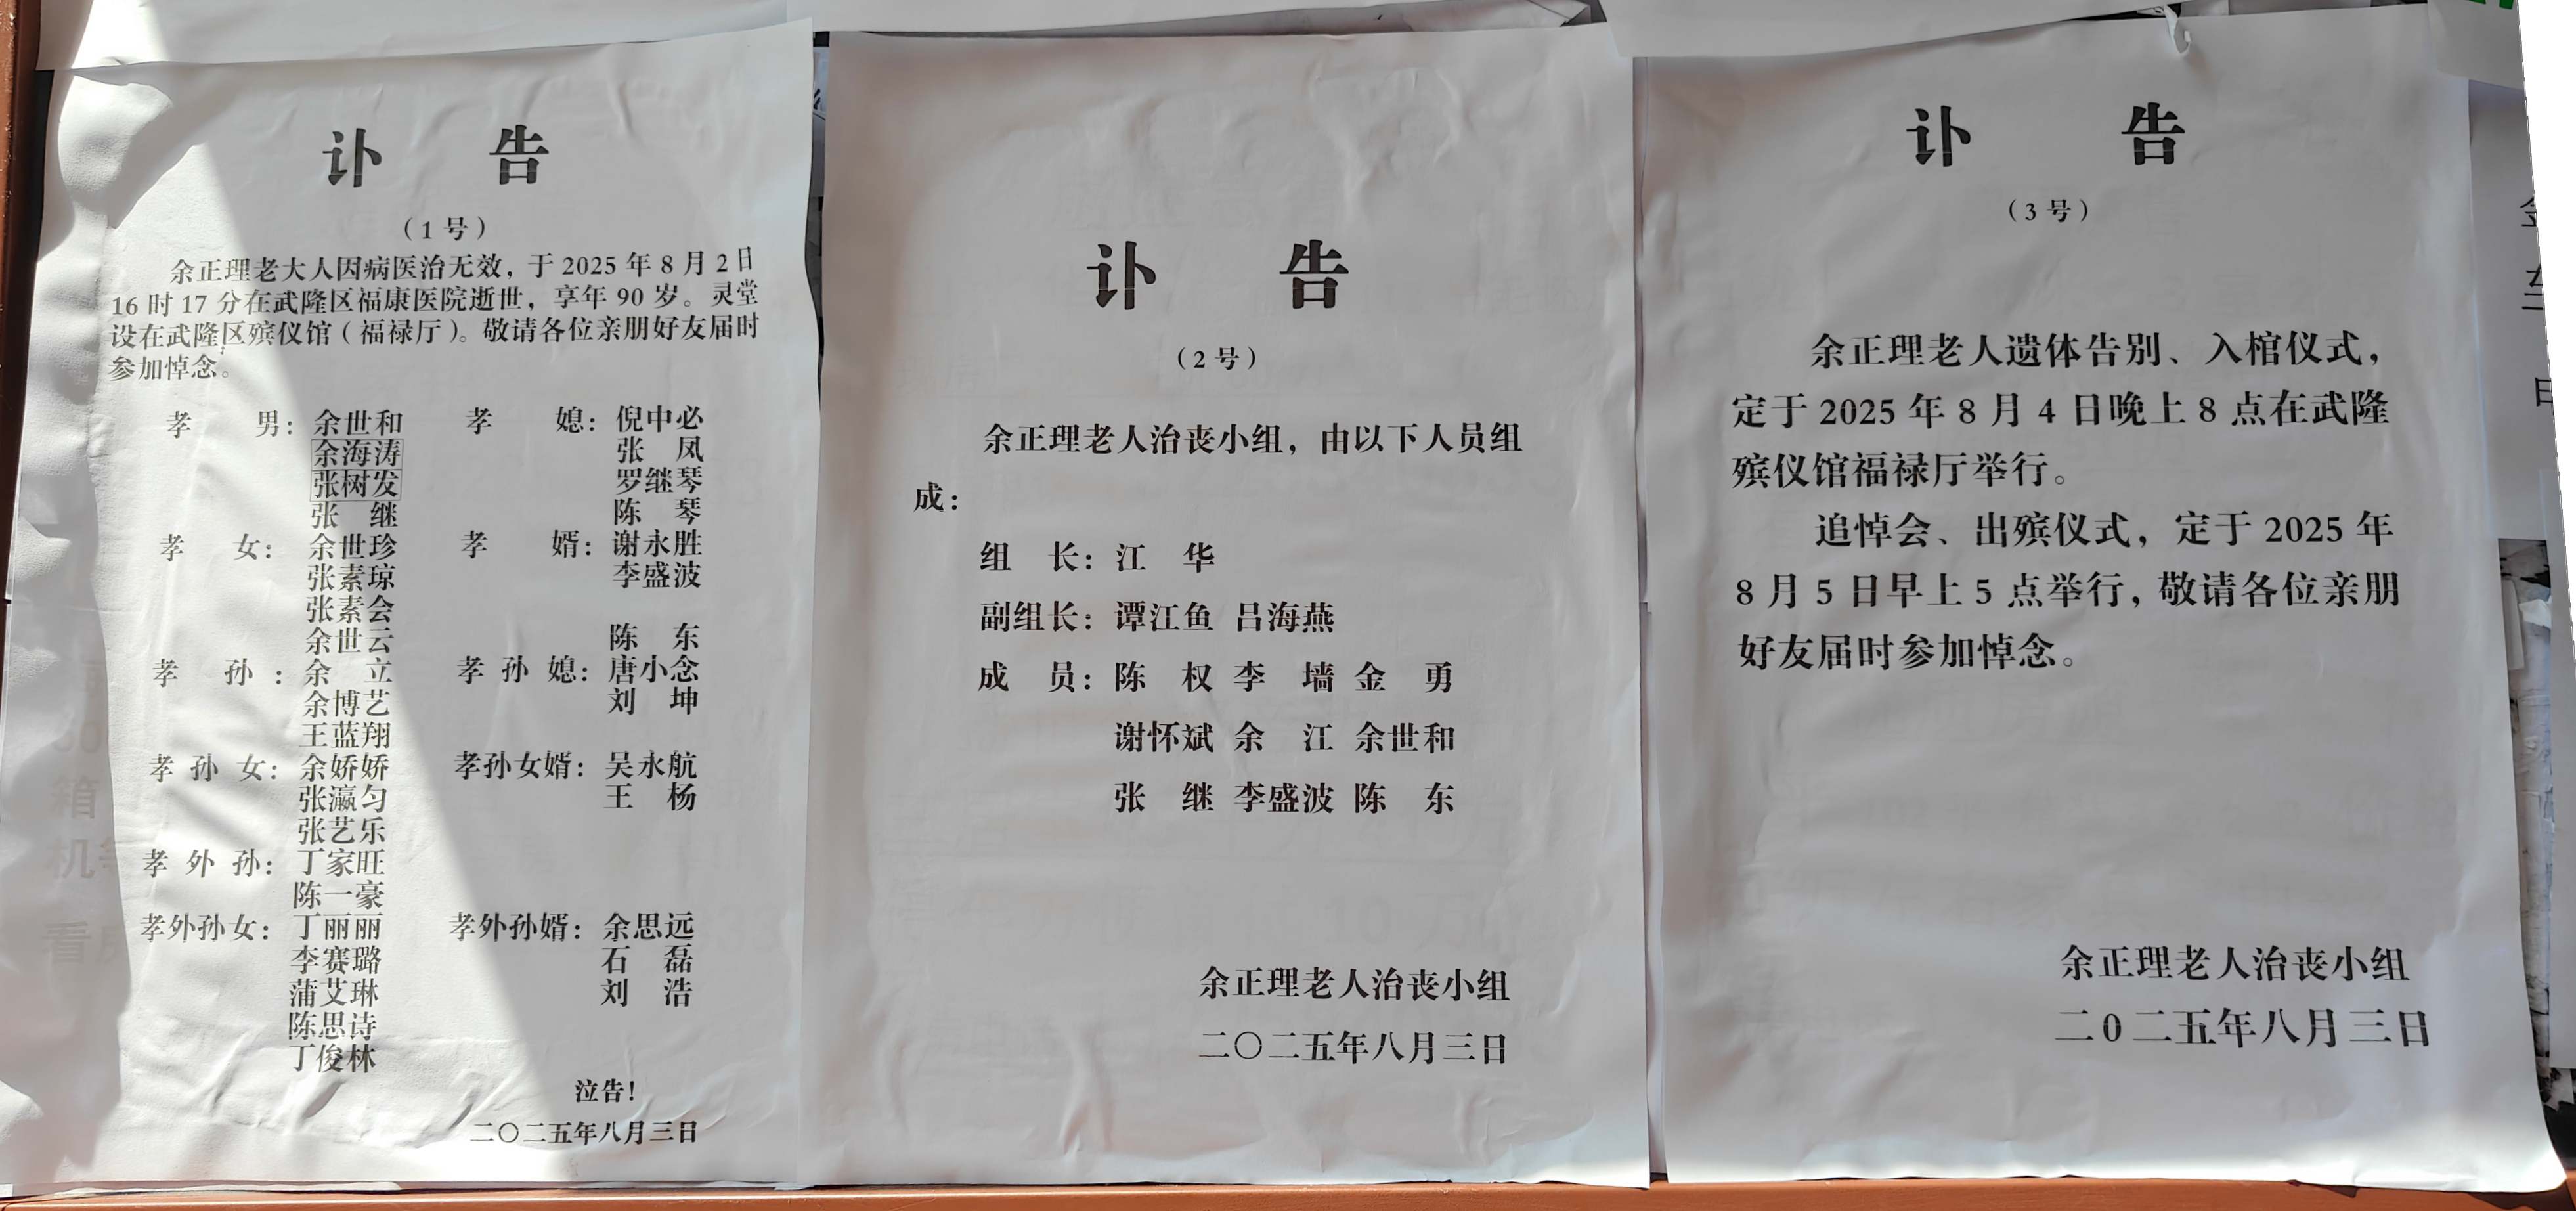 讣 告
（1号）
余正理老大人因病医治无效，于 2025 年 8 月 2 日
16 时 17 分在武隆区福康医院逝世，享年 90 岁。灵堂
设在武隆区殡仪馆（福禄厅）。敬请各位亲朋好友届时
参加悼念。
孝 男：余世和 孝 媳：倪中必
余海涛 张 凤
张树发 罗继琴
张 继 陈 琴
孝 女：余世珍 孝 婿：谢永胜
张素琼 李盛波
张素会
余世云 陈 东
孝 孙：余 立 孝 孙 媳：唐小念
余博艺 刘 坤
王蓝翔
孝 孙 女：余娇娇 孝孙女婿：吴永航
张瀛匀 王 杨
张艺乐
孝 外 孙：丁家旺
陈一豪
孝外孙女：丁丽丽 孝外孙婿：余思远
李赛璐 石 磊
蒲艾琳 刘 浩
陈思诗
丁俊林
泣告！
二〇二五年八月三日
讣 告
（2号）
余正理老人治丧小组，由以下人员组
成：
组 长：江 华
副组长：谭江鱼 吕海燕
成 员：陈 权 李 墙 金 勇
谢怀斌 余 江 余世和
张 继 李盛波 陈 东
余正理老人治丧小组
二〇二五年八月三日
讣 告
（3号）
余正理老人遗体告别、入棺仪式，
定于 2025 年 8 月 4 日晚上 8 点在武隆
殡仪馆福禄厅举行。
追悼会、出殡仪式，定于 2025 年
8 月 5 日早上 5 点举行，敬请各位亲朋
好友届时参加悼念。
余正理老人治丧小组
二0二五年八月三日